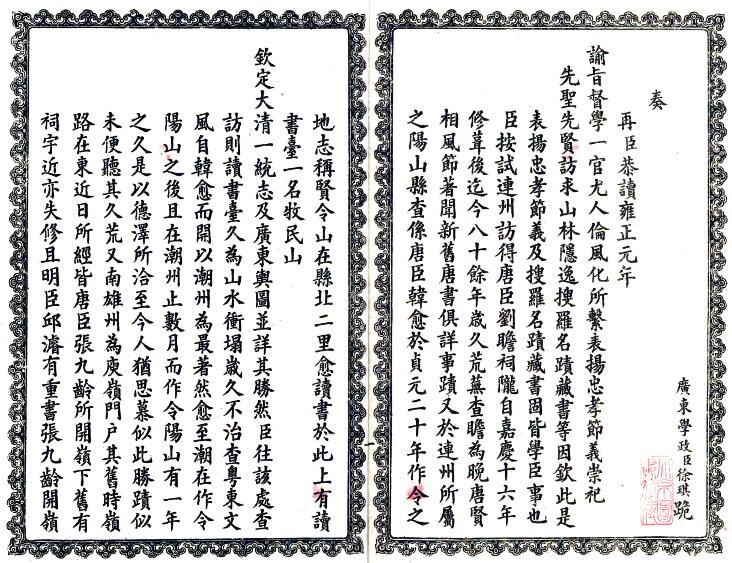 廣東學政臣徐琪跪
奏
再臣恭讀雍正元年
諭旨督學一官尤人倫風化所繫表揚忠孝節義崇祀
先聖先賢訪求山林隱逸搜羅名蹟藏書等因欽此是
表揚忠孝節義及搜羅名蹟藏書固皆學臣事也
臣按試連州訪得唐臣劉瞻祠隴自嘉慶十六年
修葺後迄今八十餘年歲久荒蕪查瞻為晚唐賢
相風節著聞新舊唐書俱詳事蹟又於連州所屬
之陽山縣查係唐臣韓愈於貞元二十年作令之
地志稱賢令山在縣北二里愈讀書於此上有讀
書臺一名牧民山
欽定大清一統志及廣東輿圖並詳其勝然臣往該處查
訪則讀書臺久為山水衝塌歲久不治查粵東文
風自韓愈而開以潮州為最著然愈至潮在作令
陽山之後且在潮州止數月而作令陽山有一年
之久是以德澤所洽至今人猶思慕似此勝蹟似
未便聽其久荒又南雄州為庾嶺門戶其舊時嶺
路在東近日所經皆唐臣張九齡所開嶺下舊有
祠宇近亦失修且明臣邱濬有重書張九齡開嶺